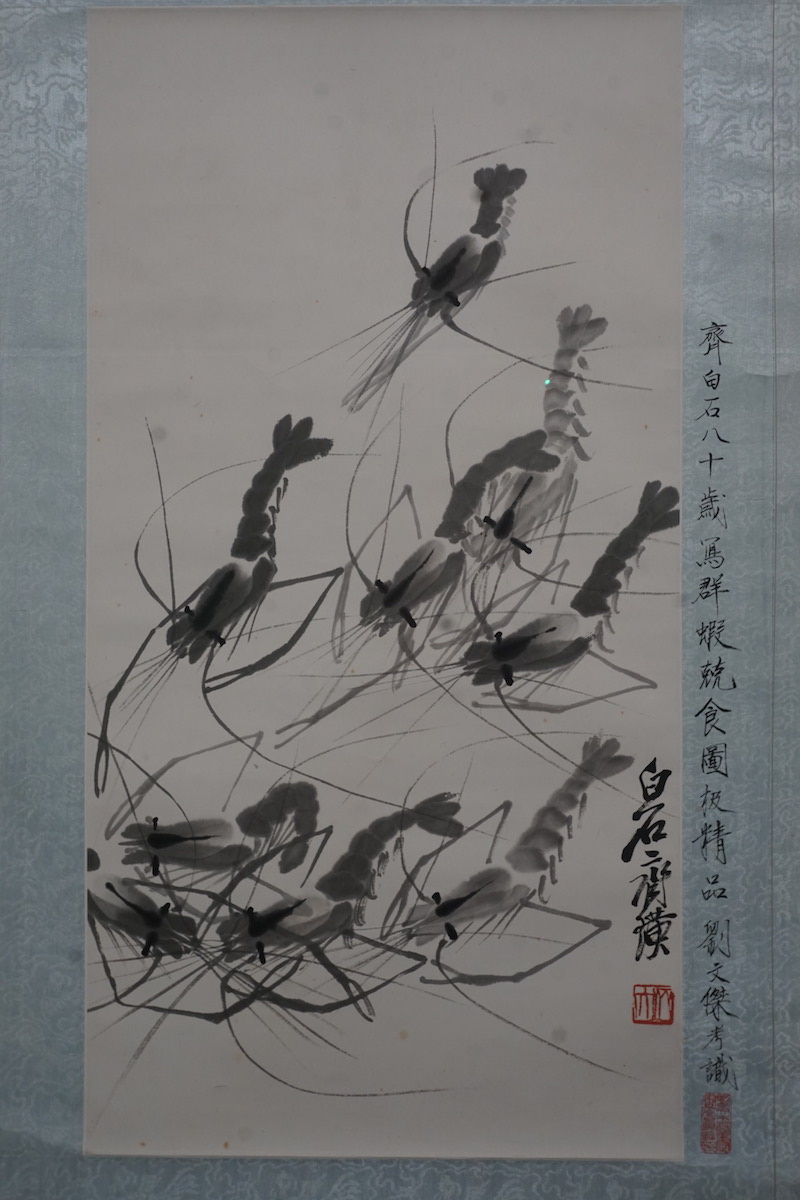 齊白石八十歲寫群蝦競食圖極精品 劉文傑考識
白石齊璜